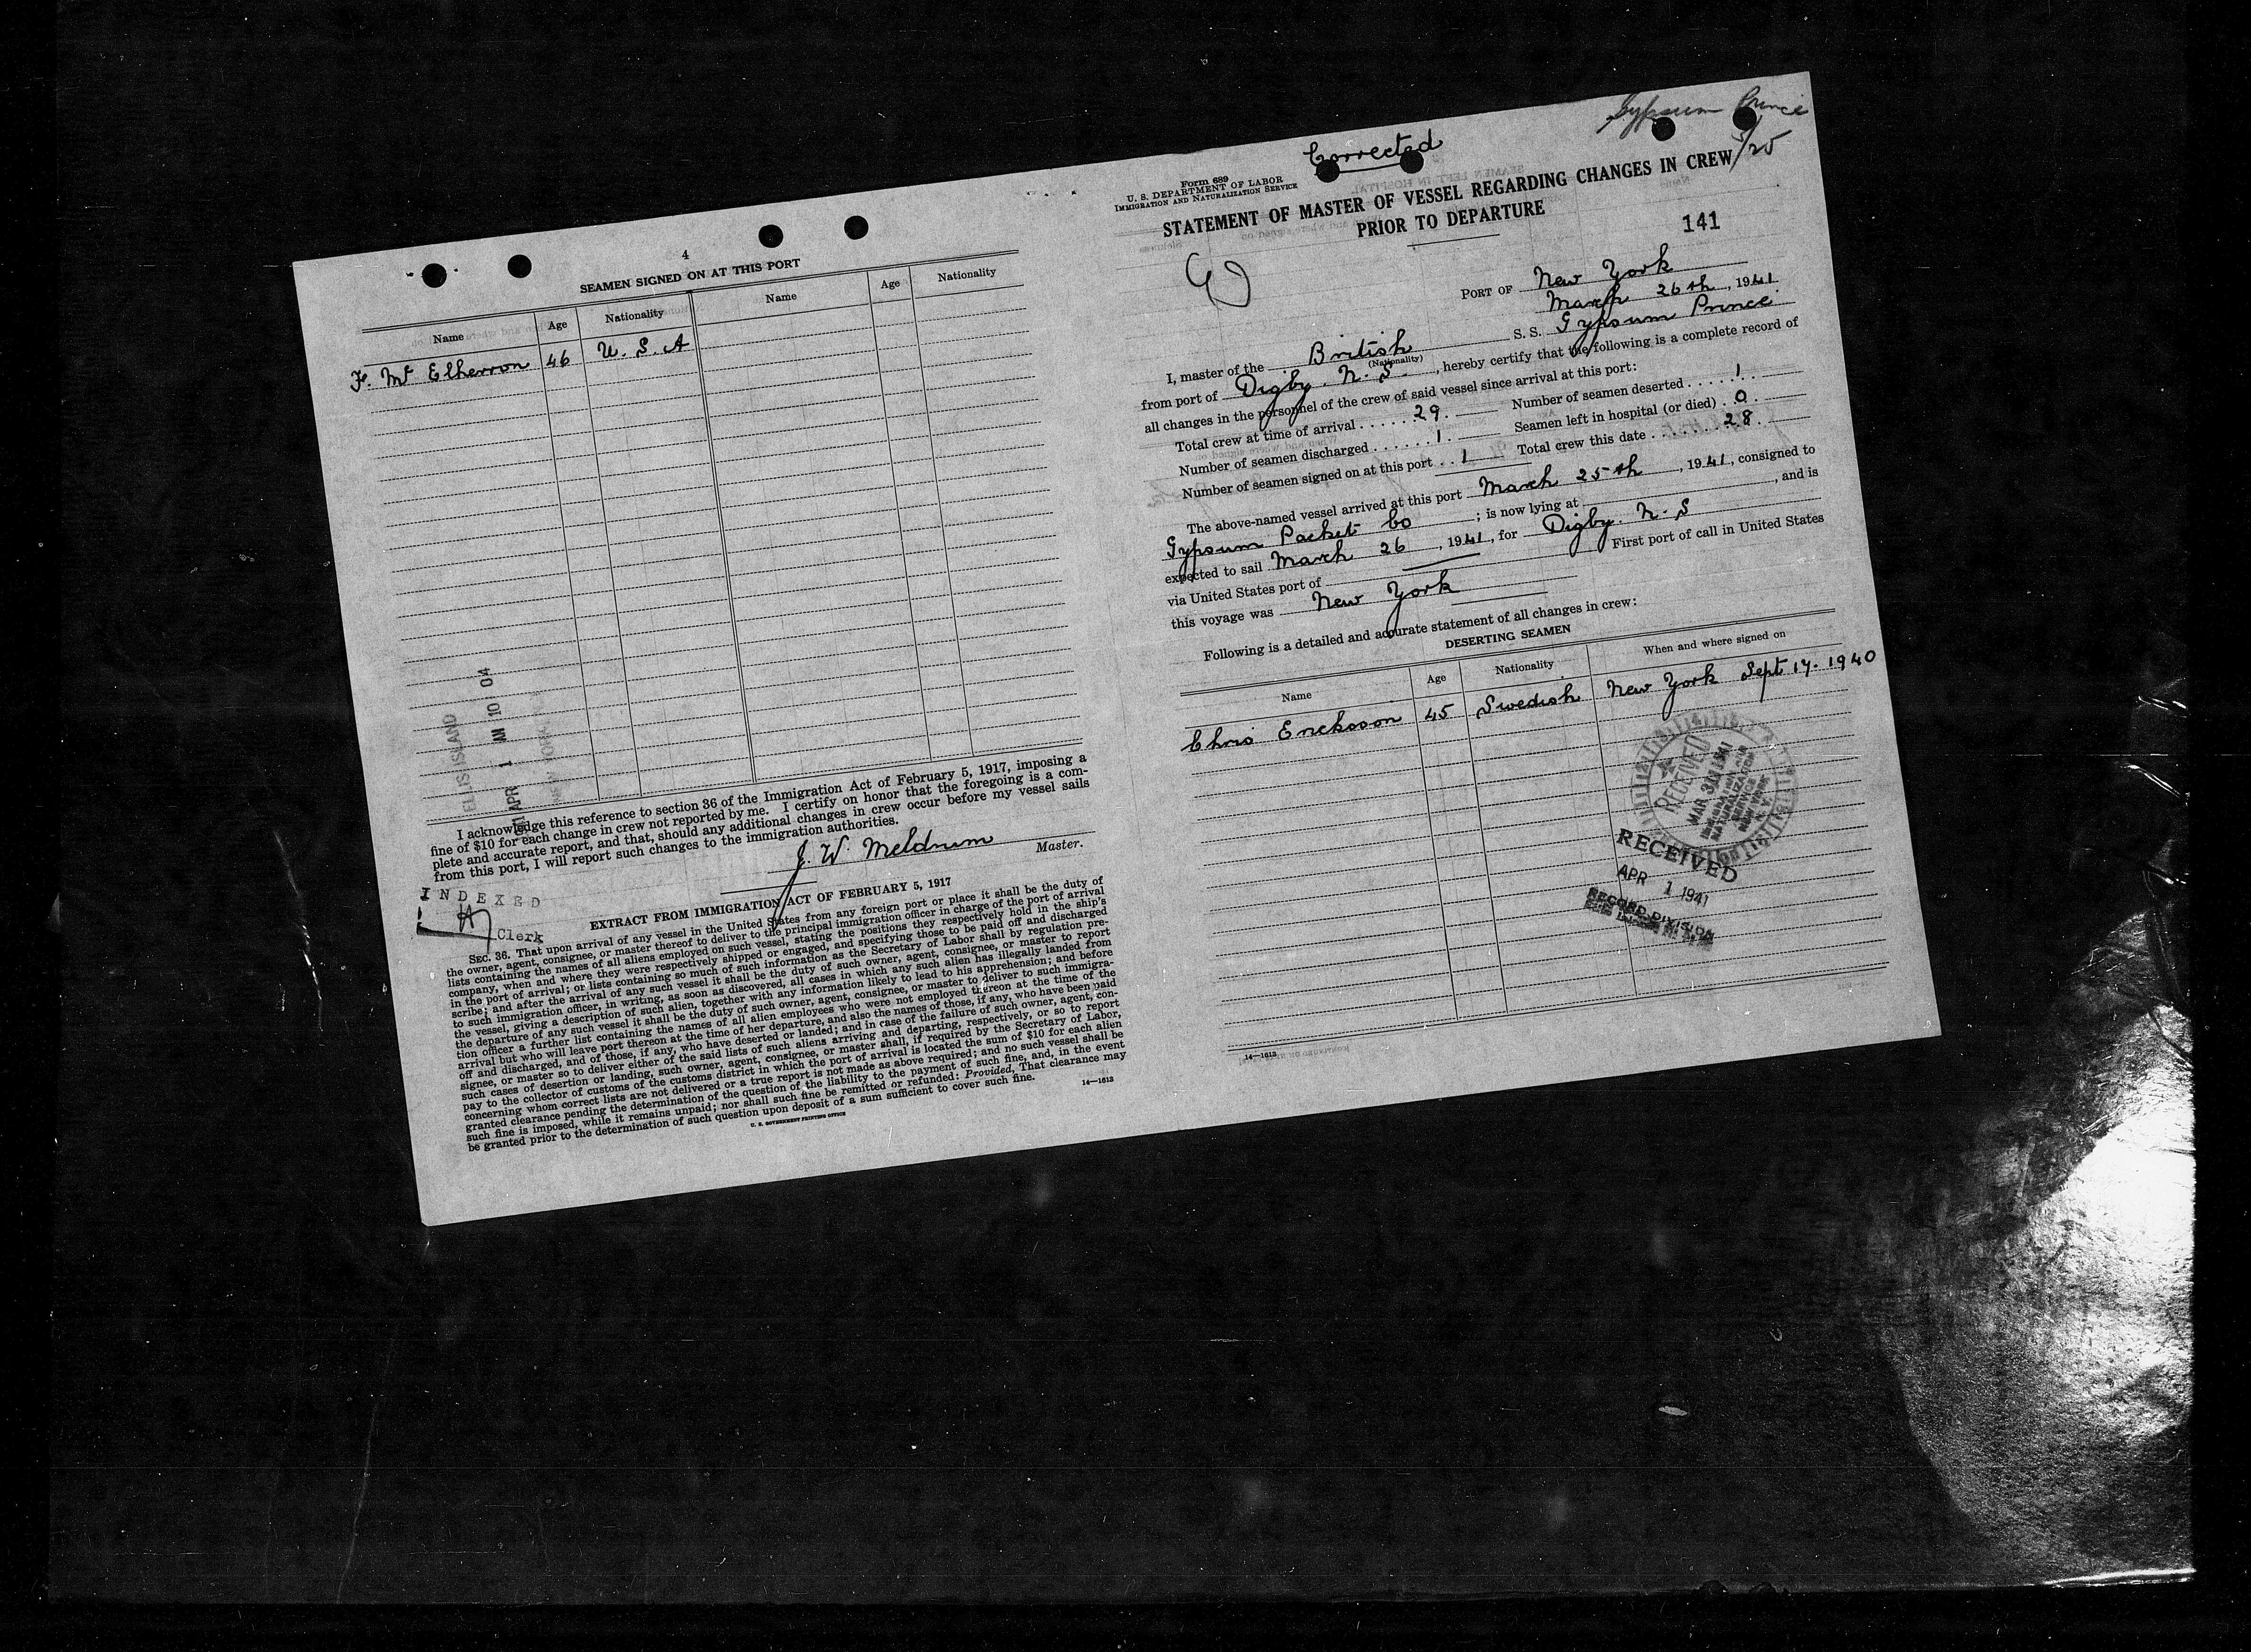 4
SEAMEN SIGNED ON AT THIS PORT
Name Age Nationality Name Age Nationality
F. Mc Elherron 46 U. S. A
ELLIS ISLAND
APR 1 AM 10 04
I acknowledge this reference to section 36 of the Immigration Act of February 5, 1917, imposing a
fine of $10 for each change in crew not reported by me. I certify on honor that the foregoing is a com-
plete and accurate report, and that, should any additional changes in crew occur before my vessel sails
from this port, I will report such changes to the immigration authorities.
J. W. Meldrum
Master.
INDEXED
Clerk
EXTRACT FROM IMMIGRATION ACT OF FEBRUARY 5, 1917
SEC. 36. That upon arrival of any vessel in the United States from any foreign port or place it shall be the duty of
the owner, agent, consignee, or master thereof to deliver to the principal immigration officer in charge of the port of arrival
lists containing the names of all aliens employed on such vessel, stating the positions they respectively hold in the ship's
company, when and where they were respectively shipped or engaged, and specifying those to be paid off and discharged
in the port of arrival; or lists containing so much of such information as the Secretary of Labor shall by regulation pre-
scribe; and after the arrival of any such vessel it shall be the duty of such owner, agent, consignee, or master to report
to such immigration officer, in writing, as soon as discovered, all cases in which any such alien has illegally landed from
the vessel, giving a description of such alien, together with any information likely to lead to his apprehension; and before
the departure of any such vessel it shall be the duty of such owner, agent, consignee, or master to deliver to such immigra-
tion officer a further list containing the names of all alien employees who were not employed thereon at the time of the
arrival but who will leave port thereon at the time of her departure, and also the names of those, if any, who have been paid
off and discharged, and of those, if any, who have deserted or landed; and in case of the failure of such owner, agent, con-
signee, or master so to deliver either of the said lists of such aliens arriving and departing, respectively, or so to report
such cases of desertion or landing, such owner, agent, consignee, or master shall, if required by the Secretary of Labor,
pay to the collector of customs of the customs district in which the port of arrival is located the sum of $10 for each alien
concerning whom correct lists are not delivered or a true report is not made as above required; and no such vessel shall be
granted clearance pending the determination of the question of the liability to the payment of such fine, and, in the event
such fine is imposed, while it remains unpaid; nor shall such fine be remitted or refunded: Provided, That clearance may
be granted prior to the determination of such question upon deposit of a sum sufficient to cover such fine.
14—1613
U. S. GOVERNMENT PRINTING OFFICE
Gypsum Prince
Corrected
3/25
Form 689
U. S. DEPARTMENT OF LABOR
IMMIGRATION AND NATURALIZATION SERVICE
STATEMENT OF MASTER OF VESSEL REGARDING CHANGES IN CREW
PRIOR TO DEPARTURE
141
PORT OF New York
March 26th, 1941
I, master of the British S. S. Gypsum Prince
(Nationality)
from port of Digby. N. S., hereby certify that the following is a complete record of
all changes in the personnel of the crew of said vessel since arrival at this port:
Total crew at time of arrival 29. Number of seamen deserted 1.
Number of seamen discharged 1. Seamen left in hospital (or died) 0.
Number of seamen signed on at this port 1 Total crew this date 28.
The above-named vessel arrived at this port March 25th, 1941, consigned to
Gypsum Packet Co; is now lying at , and is
expected to sail March 26, 1941, for Digby. N. S
via United States port of First port of call in United States
this voyage was New York
Following is a detailed and accurate statement of all changes in crew:
DESERTING SEAMEN
Name Age Nationality When and where signed on
Chris Erickson 45 Swedish New York Sept 17. 1940
RECEIVED
MAR 30 1941
IMMIGRATION AND
NATURALIZATION
SERVICE
NEW YORK
N. Y.
RECEIVED
APR 1 1941
RECORD DIVISION
14—1613